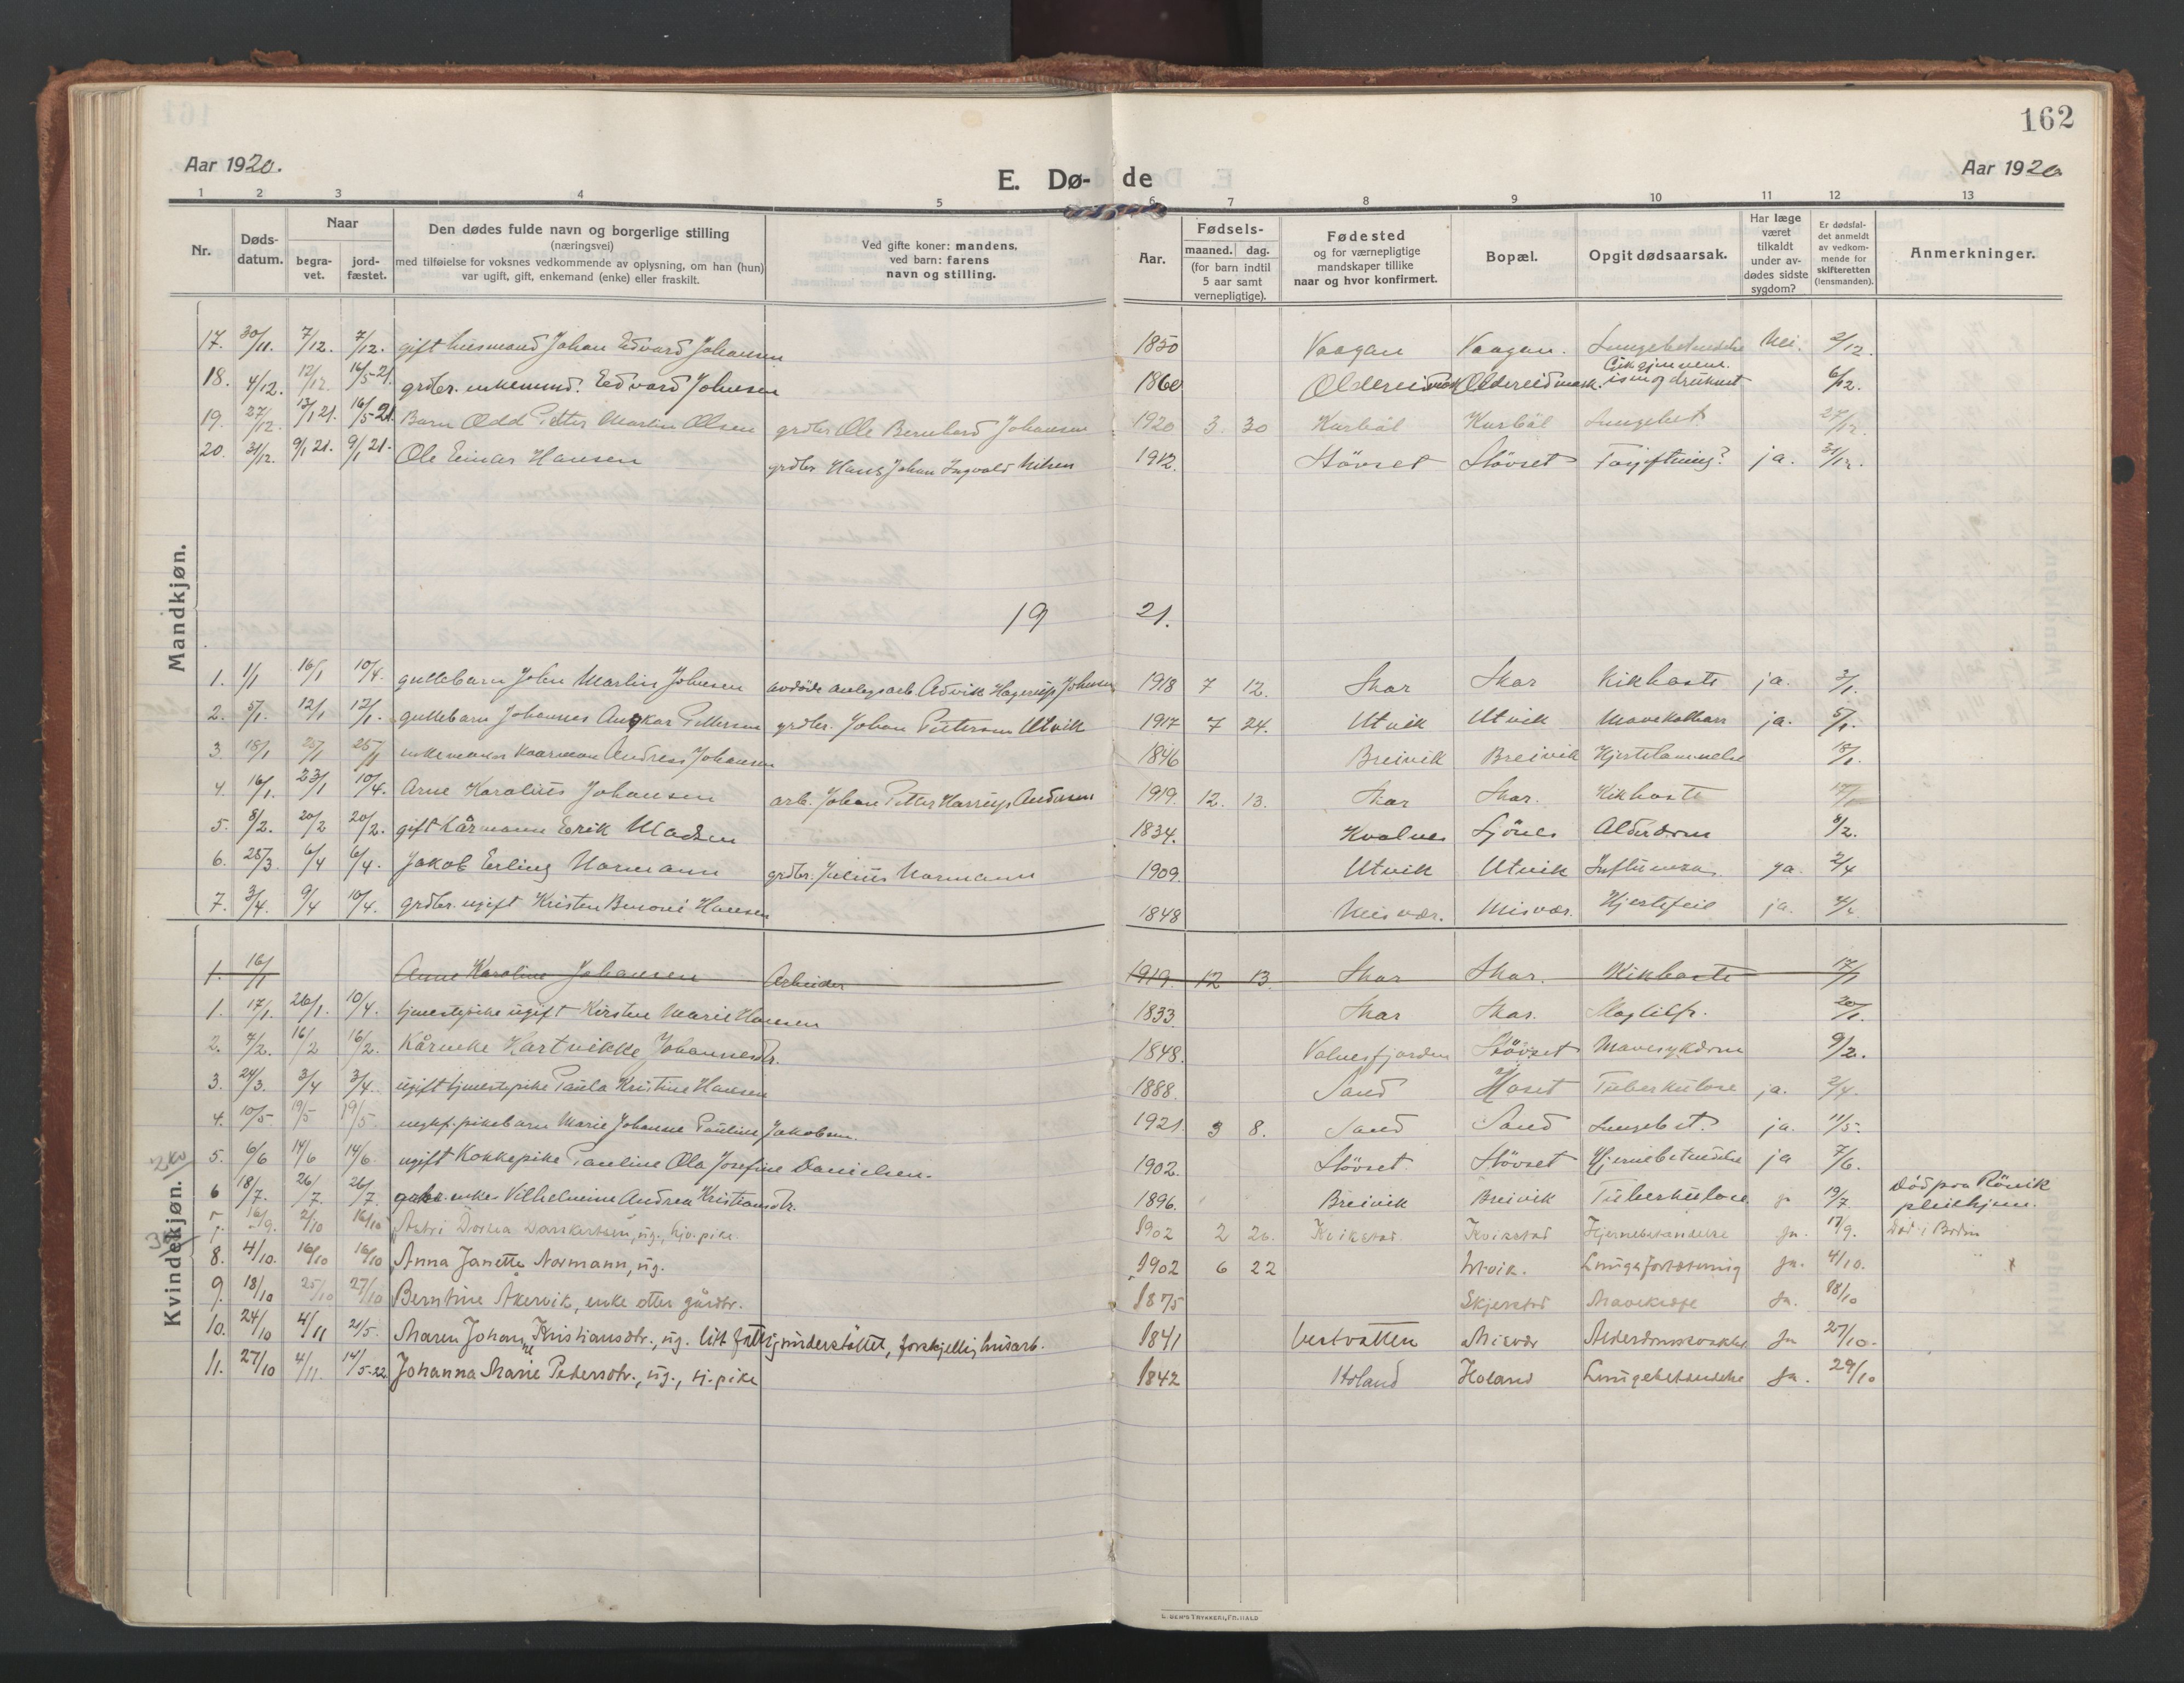 162
Aar 1920.
E. Dø-de
Aar 1920
1 2 3 4 5 6 7 8 9 10 11 12 13
Nr.
Døds-datum.
Naar
begra-vet.
jord-fæstet.
Den dødes fulde navn og borgerlige stilling
(næringsvei)
med tilføielse for voksnes vedkommende av oplysning, om han (hun)
var ugift, gift, enkemand (enke) eller fraskilt.
Ved gifte koner: mandens,
ved barn: farens
navn og stilling.
Aar.
Fødsels-
maaned. dag.
(for barn indtil
5 aar samt
vernepligtige).
Fødested
og for værnepligtige
mandskaper tillike
naar og hvor konfirmert.
Bopæl.
Opgit dødsaarsak.
Har læge
været
tilkaldt
under av-
dødes sidste
sygdom?
Er dødsfal-
det anmeldt
av vedkom-
mende for
skifteretten
(lensmanden).
Anmerkninger.
Mandkjøn.
17. 30/11. 7/12. 7/12. gift husmand Johan Edvard Johansen 1850 Vaagan Vaagan. Lungebetændelse Nei. 2/12.
18. 4/12. 12/12. 16/5-21. grdbr. enkemand. Edvard Johnsen 1860 Oldereidmark Oldereidmark. Gik gjennem isen og druknet 6/12.
19. 27/12. 13/1 21. 16/5-21. Barn Odd Petter Martin Olsen grdbr Ole Bernhard Johansen 1920 3. 30 Kurbål Kurbål Lungebet. 27/12.
20. 31/12. 9/1 21. 9/1 21. Ole Einar Hansen grdbr Hans Johan Ingvald Nilsen 1912. Støvset Støvset Forgiftning? ja. 31/12.
1921.
1. 1/1 16/1 10/4. guttebarn John Martin Johnsen avdøde anlegsarb. Advik Hagerup Johnsen 1918 7 12. Skar Skar Kikhoste ja. 3/1.
2. 5/1. 12/1 12/1. guttebarn Johannes Anskar Pettersen grdbr. Johan Pettersen Utvik 1917 7 24. Utvik Utvik Mavekatharr ja. 5/1.
3 18/1 25/1 25/1 enkemann kaarmann Andreas Johansen 1846 Breivik Breivik Hjertelammelse 18/1.
4. 16/1. 23/1 10/4. Arne Karolius Johansen arb. Johan Petter Harrup Andersen 1919. 12. 13. Skar Skar. Kikhoste 17/1
5. 8/2. 20/2 20/2. gift kårmann Erik Madsen 1834. Kvalnes Ljønes Alderdom 9/2.
6. 28/3 6/4 6/4. Jakob Erling Normann grdbr. Julius Normann 1909. Utvik Utvik Influensa. ja. 2/4
7. 3/4. 9/4 10/4. grdbr. ugift Kristen Benoni Hansen 1848 Misvær. Misvær. Hjertefeil ja. 4/4
Kvindekjøn.
1. 16/1 Anne Karoline Johansen Arbeider 1919. 12 13. Skar Skar. Kikhoste 17/1
1. 17/1. 26/1. 10/4. tjenestepike ugift Kirsten Marie Hansen 1833. Skar Skar. Slagtilf. 20/1.
2. 7/2. 16/2 16/2. Kårenke Hartvikke Johannesdtr. 1848. Valnesfjorden Støvset Mavesykdom 9/2.
3. 24/3. 3/4 3/4. ugift tjenestepike Paula Kristine Hansen 1888. Sand Hoset Tuberkulose ja. 2/4.
4. 10/5 19/5 19/5. uegtef. pikebarn Marie Johanne Pauline Jakobsen. 1921 3 8. Sand Sand Lungebet. ja. 11/5.
5. 6/6 14/6 14/6. ugift Kokkepike Pauline Ola Josefine Danielsen. 1902. Støvset. Støvset Hjernebetendelse ja 7/6.
6 18/7. 26/7. 26/7 grbr. enke Vilhelmine Andrea Kristiansdtr. 1896. Breivik Breivik Tuberkulose 19/7. Død paa Rønvik pleiehjem.
7. 16/9. 2/10 16/10 Dortea ug., hj. pike 1902 2 20. Kvikstad. Kvikstad Hjernebetændelse ja. 17/9. Død i Bodin
8. 4/10. 16/10 16/10 Anna Janette Normann, ug. 1902 6 22 Utvik. Lungefortætning ja. 4/10.
9. 18/10 25/10 27/10 Berntine Åkervik, enke etter gårdbr. 1875 Skjerstad Mavekræft ja. 18/10
10. 24/10 4/11 21/5. Maren Johanne Kristiansdtr., ug. litt fattigunderstøttet, forskjellig husarb. 1841 Vestvatten Misvær Alderdomssvakhet ja 25/10.
11. 27/10 4/11. 14/5-22 Johanna Marie Pedersdtr., ug., tj. pike 1842 Holand Holand Lungebetændelse ja. 29/10